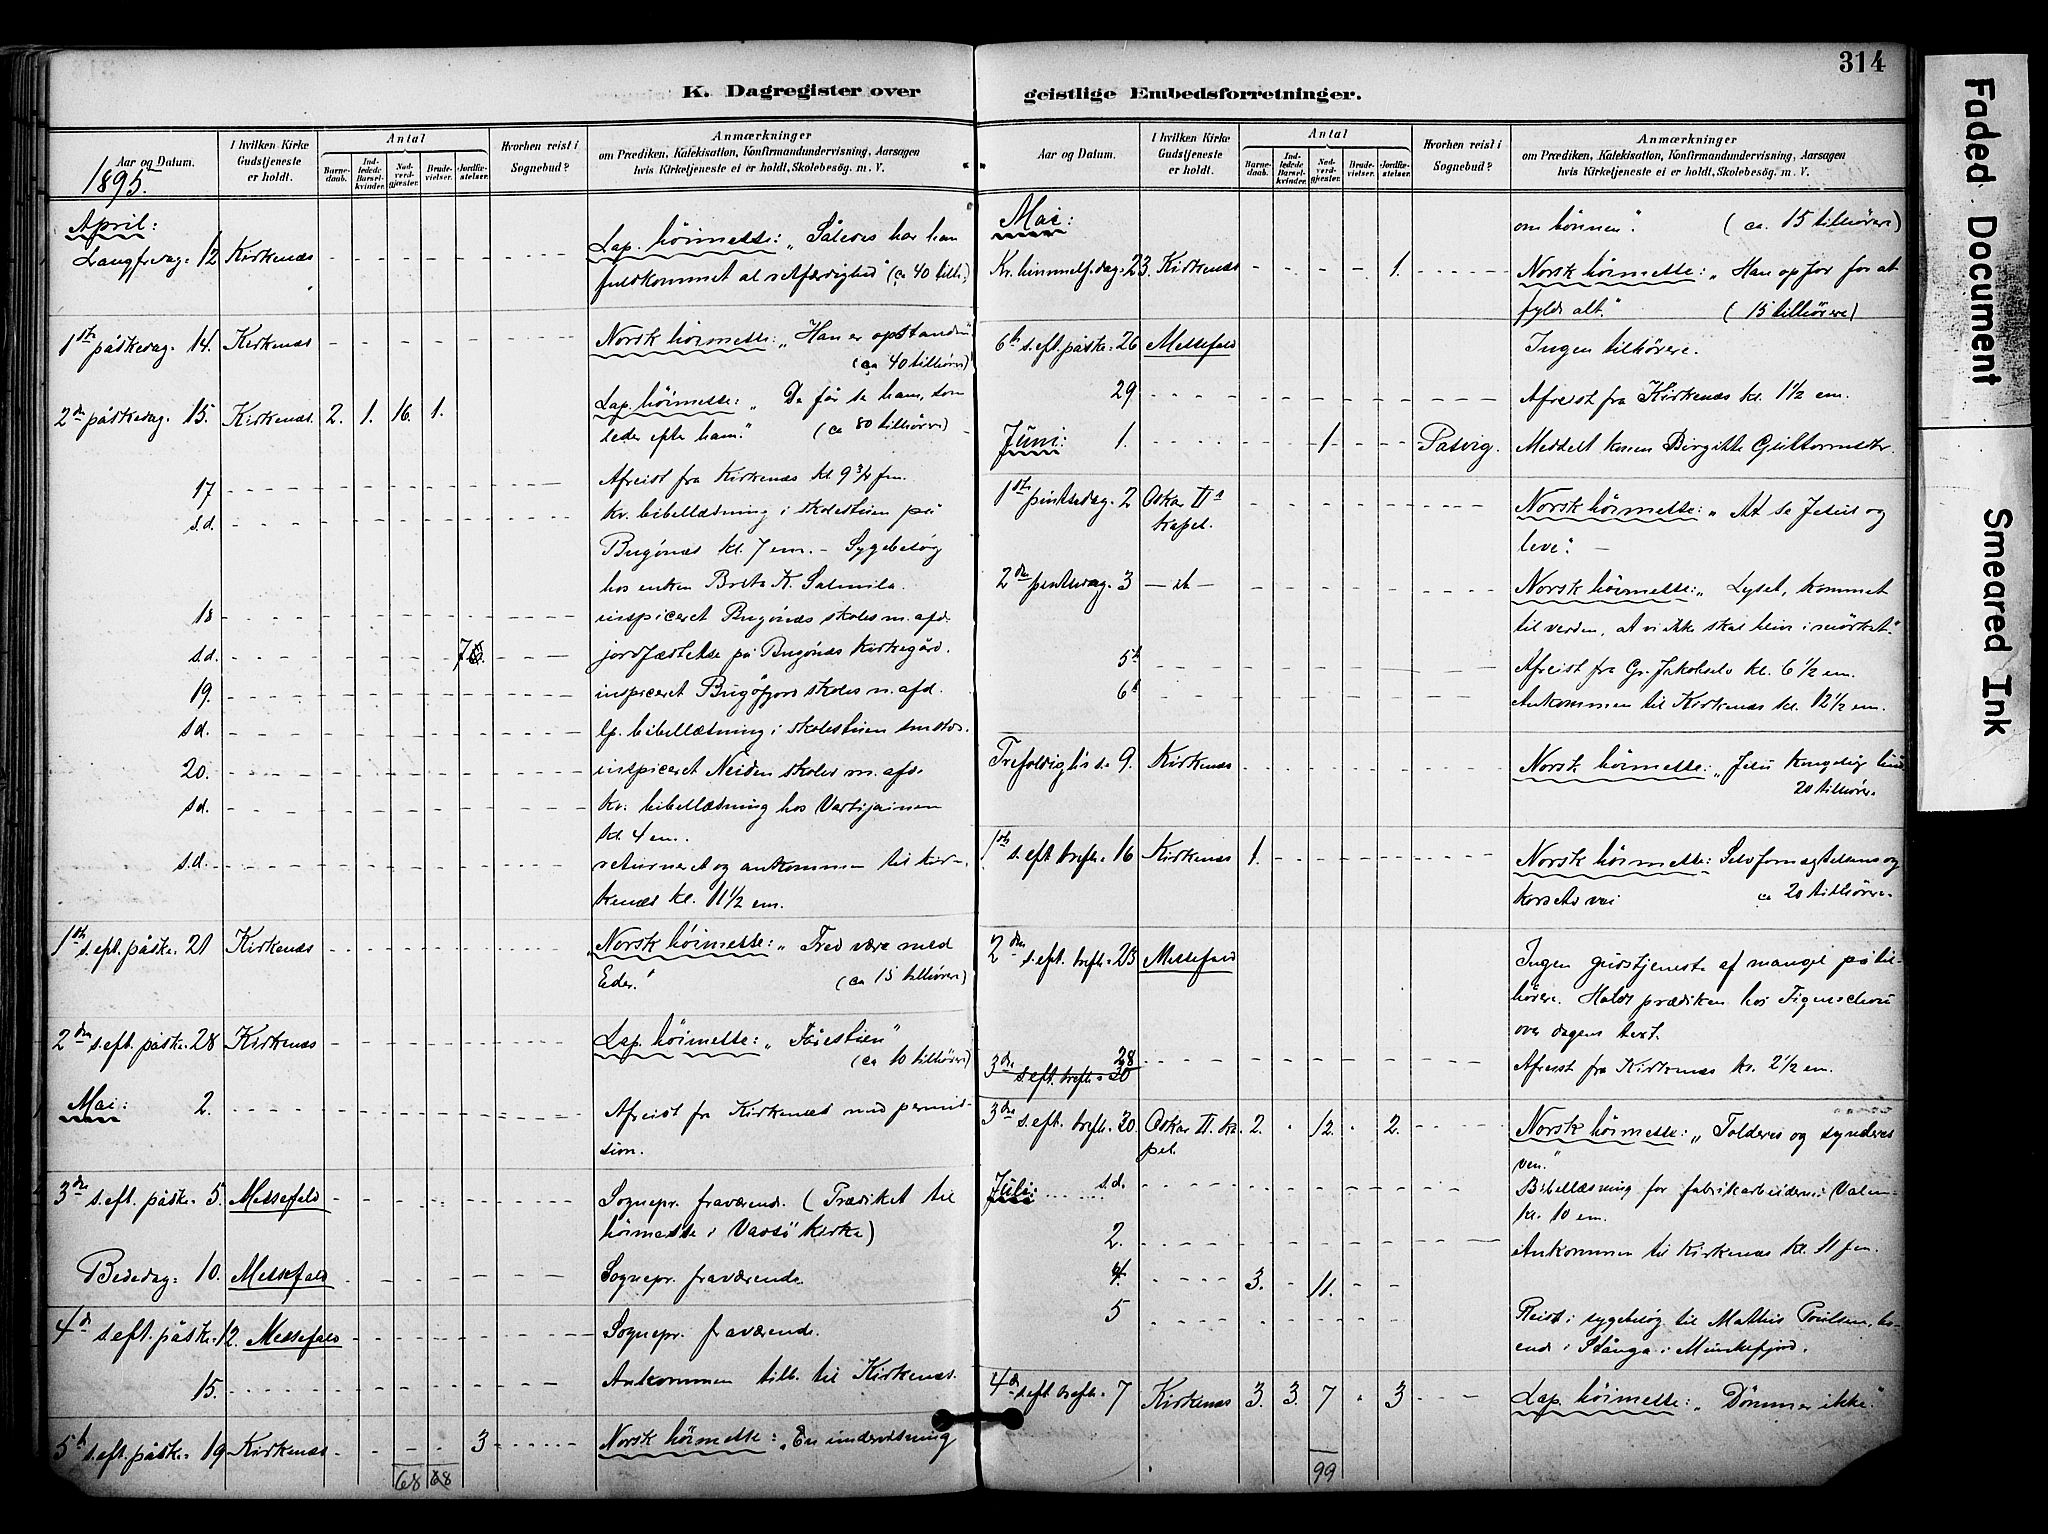 K. Dagregister over
Aar og Datum.
1895.
I hvilken Kirke Gudstjeneste er holdt.
Antal
Barnedaab.
Indledede Barselkvinder.
Nadverdgjester.
Brudevielser.
Jordfæstelser.
Hvorhen reist i Sognebud?
Anmærkninger
om Prædiken, Katekisation, Konfirmandundervisning, Aarsagen
hvis Kirketjeneste ei er holdt, Skolebesøg. m. V.
April:
Langfredag 12 Kirkenæs Lap. høimesse: „Således har han
fuldkommet al retfærdighed" (ca 40 tilh.)
1ste påskedag 14. Kirkenæs Norsk høimesse: „Han er opstanden"
(ca 40 tilhører)
2den påskedag. 15. Kirkenæs. 2. 1. 16. 1. Lap. høimesse: „Da får se ham, som
leder efter ham." (ca 80 tilhører)
17 Afreist fra Kirkenæs kl 9 3/4 fm.
s.d. kv. bibellæsning i skolestuen på
Bugønæs kl. 7 em. – Sygebesøg
hos enken Brita K. Salmila.
18 inspiceret Bugønæs skoles m. afd.
s.d. 7 jordfæstelse på Bugønæs Kirkegård.
19. inspiceret Bugøfjors skoles m. afd.
s.d. lp. bibellæsning i skolestuen smstds.
20. inspiceret Neiden skoles m. afd.
s.d. kv. bibellæsning hos Vartijainen
kl. 4 em.
s.d. returneret og ankommen til Kir-
kenæs kl. 11 1/2 em.
1ste s. eft. påske 21 Kirkenæs Norsk høimesse: „Fred være med
Eder." (ca 15 tilhører)
2den s. eft. påske. 28 Kirkenæs Lap. høimesse: „Fårestien"
(ca 10 tilhører)
Mai: 2. Afreist fra Kirkenæs med permis-
sion.
3die s. eft. påske 5. Messefald Sognepr. fraværende. (Prædiket til
høimesse i Vadsö kirke)
Bededag 10. Messefald Sognepr. fraværende
4de s. eft. påske 12. Messefald Sognepr. fraværende.
15. Ankommen tilb. til Kirkenæs.
5te s. eft. påske 19 Kirkenæs 3 Norsk høimesse: „En undervisning
68 68
314
geistlige Embedsforretninger.
Aar og Datum.
I hvilken Kirke Gudstjeneste er holdt.
Antal
Barnedaab.
Indledede Barselkvinder.
Nadverdgjester.
Brudevielser.
Jordfæstelser.
Hvorhen reist i Sognebud?
Anmærkninger
om Prædiken, Katekisation, Konfirmandundervisning, Aarsagen
hvis Kirketjeneste ei er holdt, Skolebesøg. m. V.
Mai: om bønnen". (ca. 15 tilhører)
Kr. himmelf. dag 23. Kirkenæs 1. Norsk høimesse: „Han opfor for at
fylde alt." (15 tilhører)
6te s. eft. påske 26 Messefald Ingen tilhørere.
29 Afreist fra Kirkenæs kl. 1 1/2 em.
Juni: 1. 1 Pasvig. Meddelt konen Birgitte Guttormsdtr.
1ste pintsedag. 2 Oskar II s kapel. Norsk høimesse: „At se Jesus og
leve". –
2den pintsedag. 3 Norsk høimesse: „Lyset, kommet
til verden, at vi ikke skal bliv i mørket."
5te Afreist fra Gr. Jakobselv kl. 6 1/2 em.
6te Ankommen til Kirkenæs kl. 12 1/2 em.
Trefoldighs s. 9. Kirkenæs Norsk høimesse: „Jesu kongelig
20 tilhører.
1ste s. eft. trefh. 16 Kirkenæs 1. Norsk høimesse: Selvfornegtelsens og
korsets vei ca 20 tilhører.
2den s. eft. trefh. 23 Messefald Ingen gudstjeneste af mangel på til-
hører. Holdt prædiken hos Figenschou
over dagens text.
3die s. eft. trefh. 30 28 Afreist fra Kirkenæs kl. 2 1/2 em.
3die s. eft. trefh. 30. Oskar II. ka
pel. 2. 12. 2. Norsk høimesse: „Tolderes og synderes
ven."
Juli: s.d. Bibellæsning for fabrikarbeiderne i
kl. 10 em.
2. Ankommen til Kirkenæs kl. 11 fm.
4. 3. 11.
5 Reist i sygebesøg til Mathis Poulsen, bo-
ende i Stånga i Munkefjord.
4de s. eft. trefh. 7 Kirkenæs 3. 3. 7 3 Lap. høimesse: „Dømmer ikke."
99
Faded Document
Smeared Ink